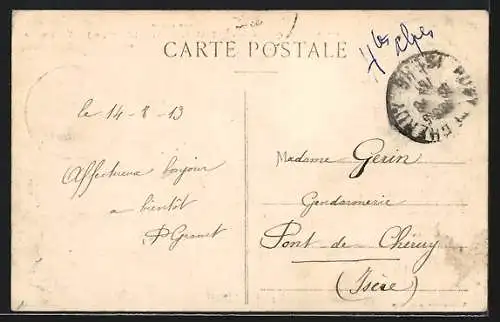 Htes Alpes
CARTE POSTALE
le 14-8-13
Affectueux bonjour
a bientôt
Madame Gerin
Gendarmerie
Pont de Chéruy
(Isère)